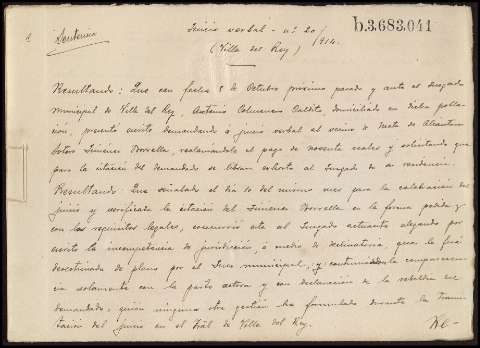 Sentencia
Juicio verbal - nº 20/914.
b.3.683.041
(Villa del Rey)
Resultando: Que con fecha 5 de Octubre próximo pasado y ante el Juzgado
municipal de Villa del Rey, Antonio Saldita, domiciliado en dicha pobla-
ción, presentó escrito demandando á juicio verbal al vecino de Mata de Alcántara
Sotero Jiménez Borrella, reclamándole el pago de noventa reales y solicitando que
para la citación del demandado se librara exhorto al Juzgado de su residencia.
Resultando: Que señalado el día 10 del mismo mes para la celebración del
juicio y verificada la citación del Jimenez Borrella en la forma pedida y
con los requisitos legales, concurrió este al Juzgado actuante alegando por
escrito la incompetencia de jurisdicción, á medio de declinatoria, que le fué
desestimada de plano por el Juez municipal, y continuándola comparecen-
cia solamente con la parte actora y con declaración de la rebeldía del
demandado, quien ninguna otra gestión ha formulado durante la trami-
tación del juicio en el Trál de Villa del Rey.